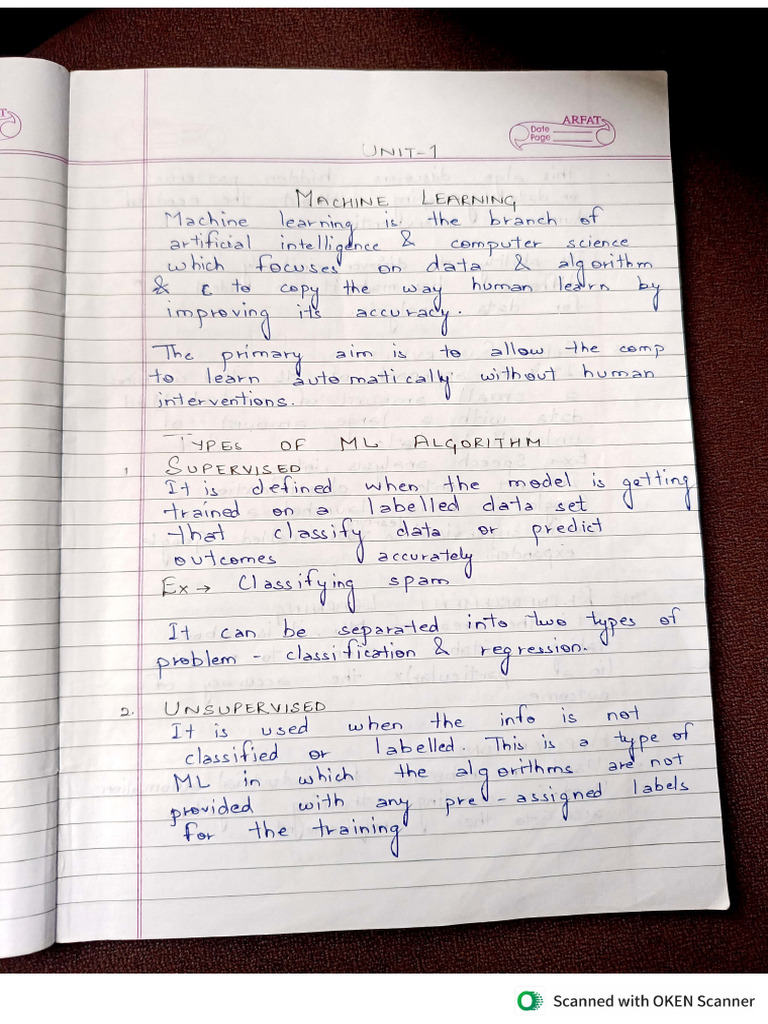 ARFAT
Date
Page
UNIT-1
MACHINE LEARNING
Machine learning is the branch of
artificial intelligence & computer science
which focuses on data & algorithm
& c to copy the way human learn by
improving its accuracy.
The primary aim is to allow the comp
to learn automatically without human
interventions.
TYPES OF ML ALGORITHM
1. SUPERVISED
It is defined when the model is getting
trained on a labelled data set
that classify data or predict
outcomes accurately
Ex → Classifying spam
It can be separated into two types of
problem - classification & regression.
2. UNSUPERVISED
It is used when the info is not
classified or labelled. This is a type of
ML in which the algorithms are not
provided with any pre-assigned labels
for the training
Scanned with OKEN Scanner